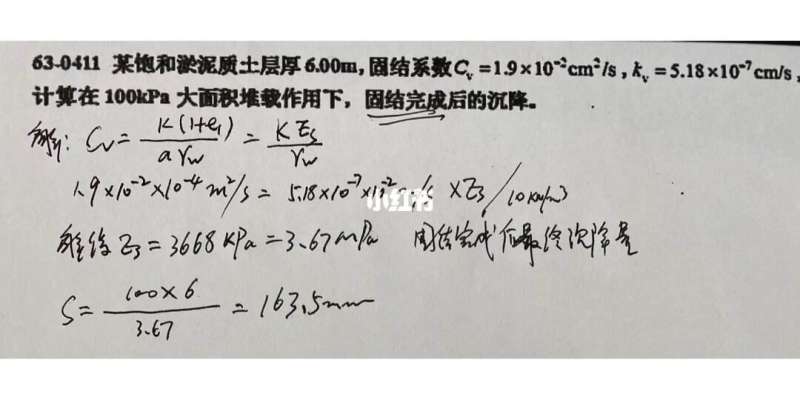 63-0411 某饱和淤泥质土层厚6.00m,固结系数Cᵥ=1.9×10⁻²cm²/s,kᵥ=5.18×10⁻⁷cm/s,
计算在100kPa大面积堆载作用下，固结完成后的沉降。
解: Cv = K(1+e₁)/aγw = KEs/γw
1.9×10⁻²×10⁻⁴m²/s = 5.18×10⁻⁷×10⁻² ×Es/10kN/m³
小红书
Es=3668kPa=3.67mPa 固结完成后最终沉降量
S= 100×6/3.67 = 163.5mm